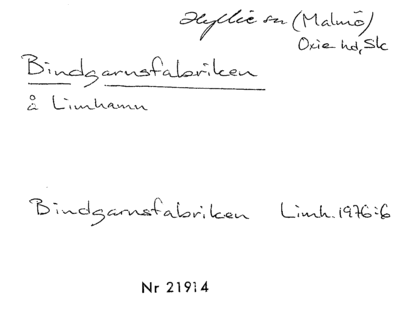 Hyllie sn (Malmö)
Oxie hd, Sk
Bindgarnsfabriken
å Limhamn
Bindgarnsfabriken Limh. 1976:6
Nr 21914